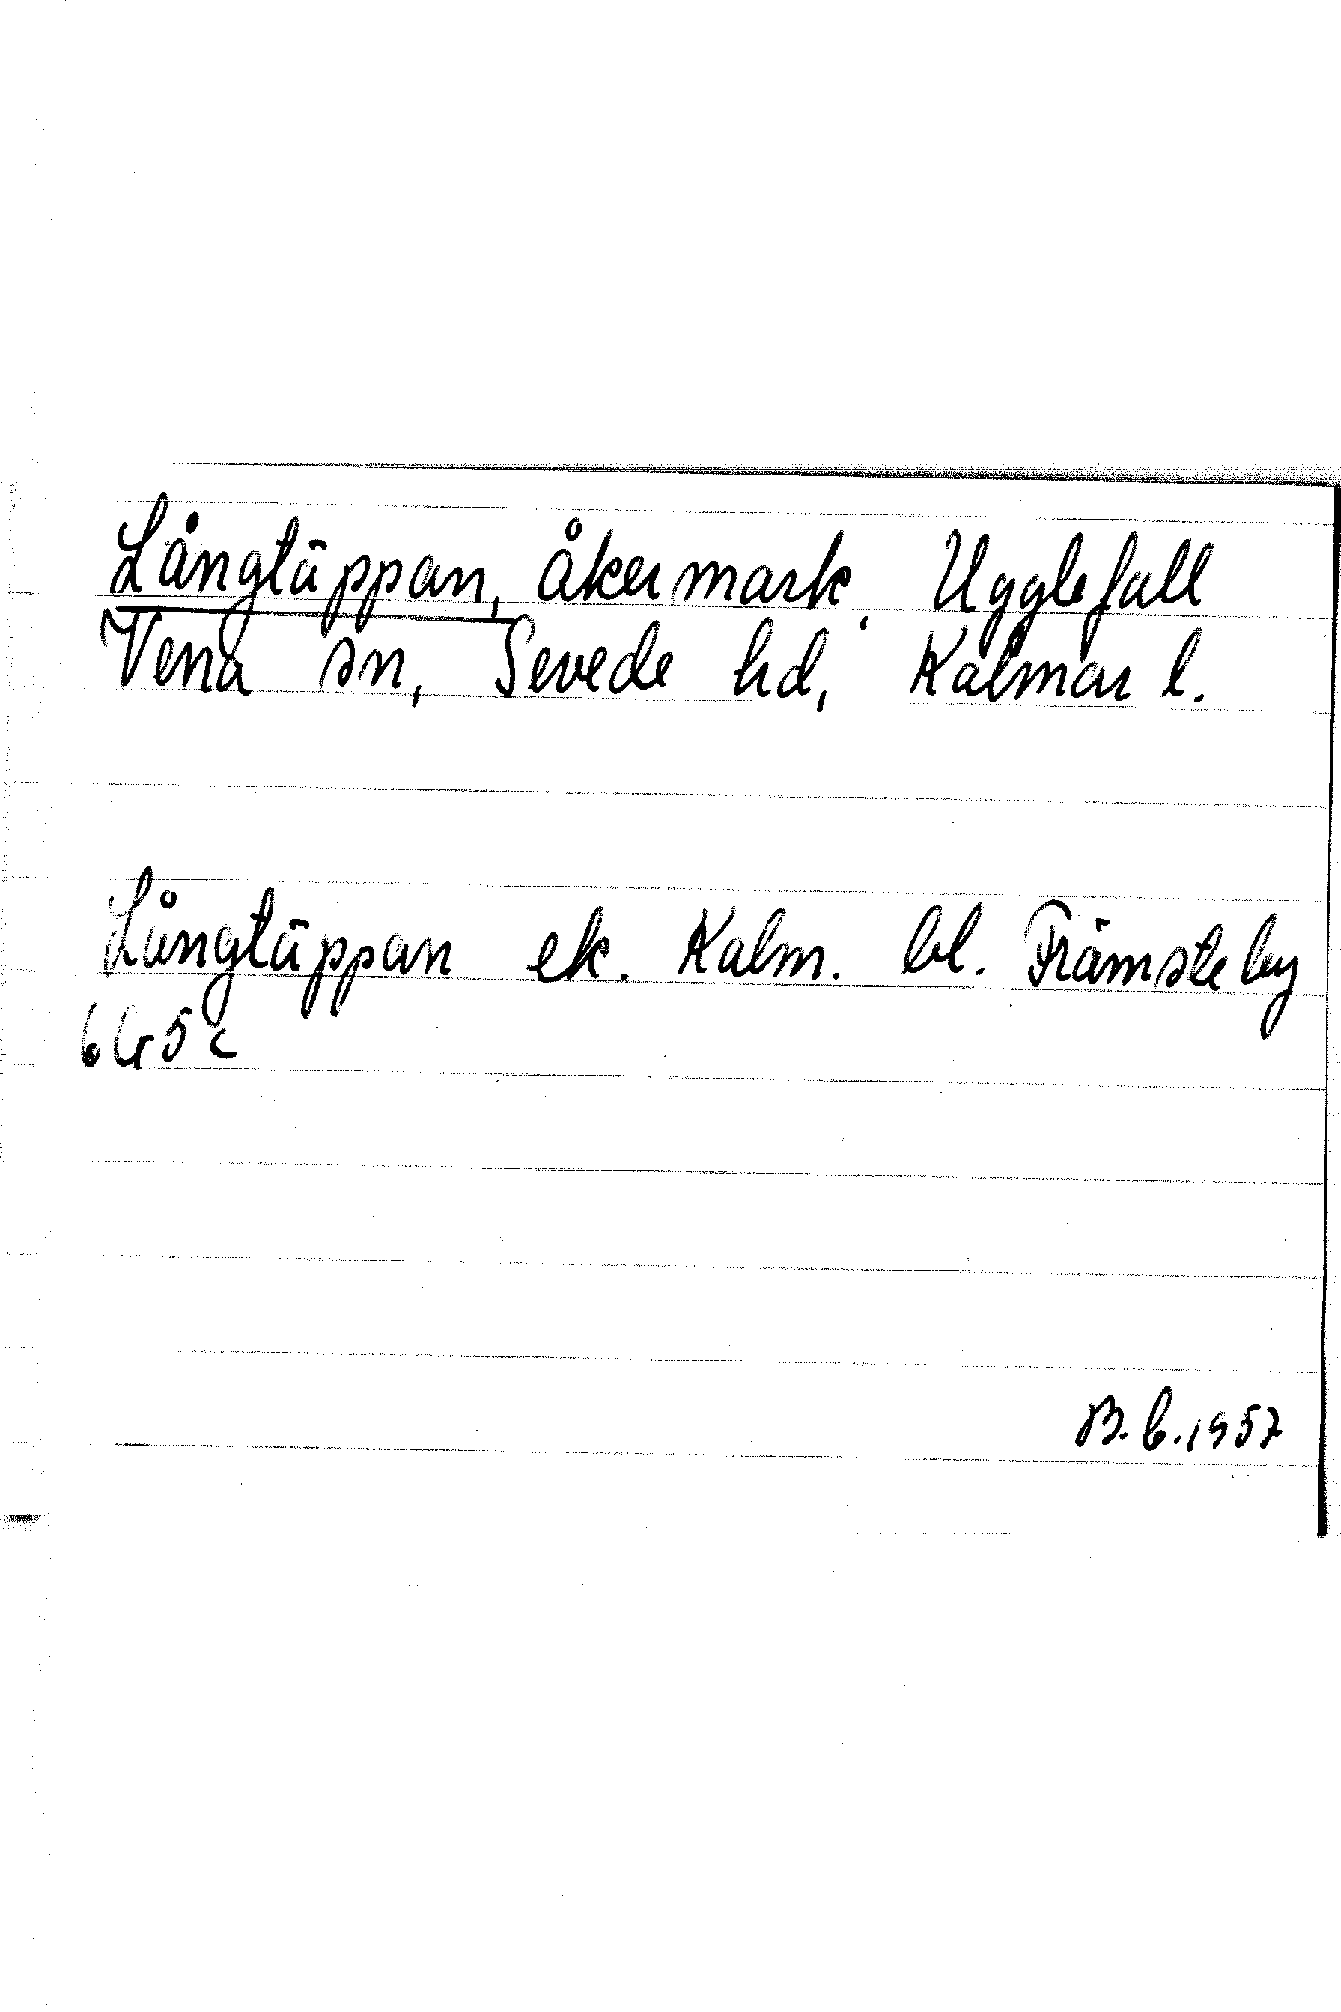 Långtäppan, åkermark, Ugglefall
Vena sn, Sevede hd, Kalmar l.
Långtäppan ek. Kalm. bl. Främsteby
6G5c
B.b.1957